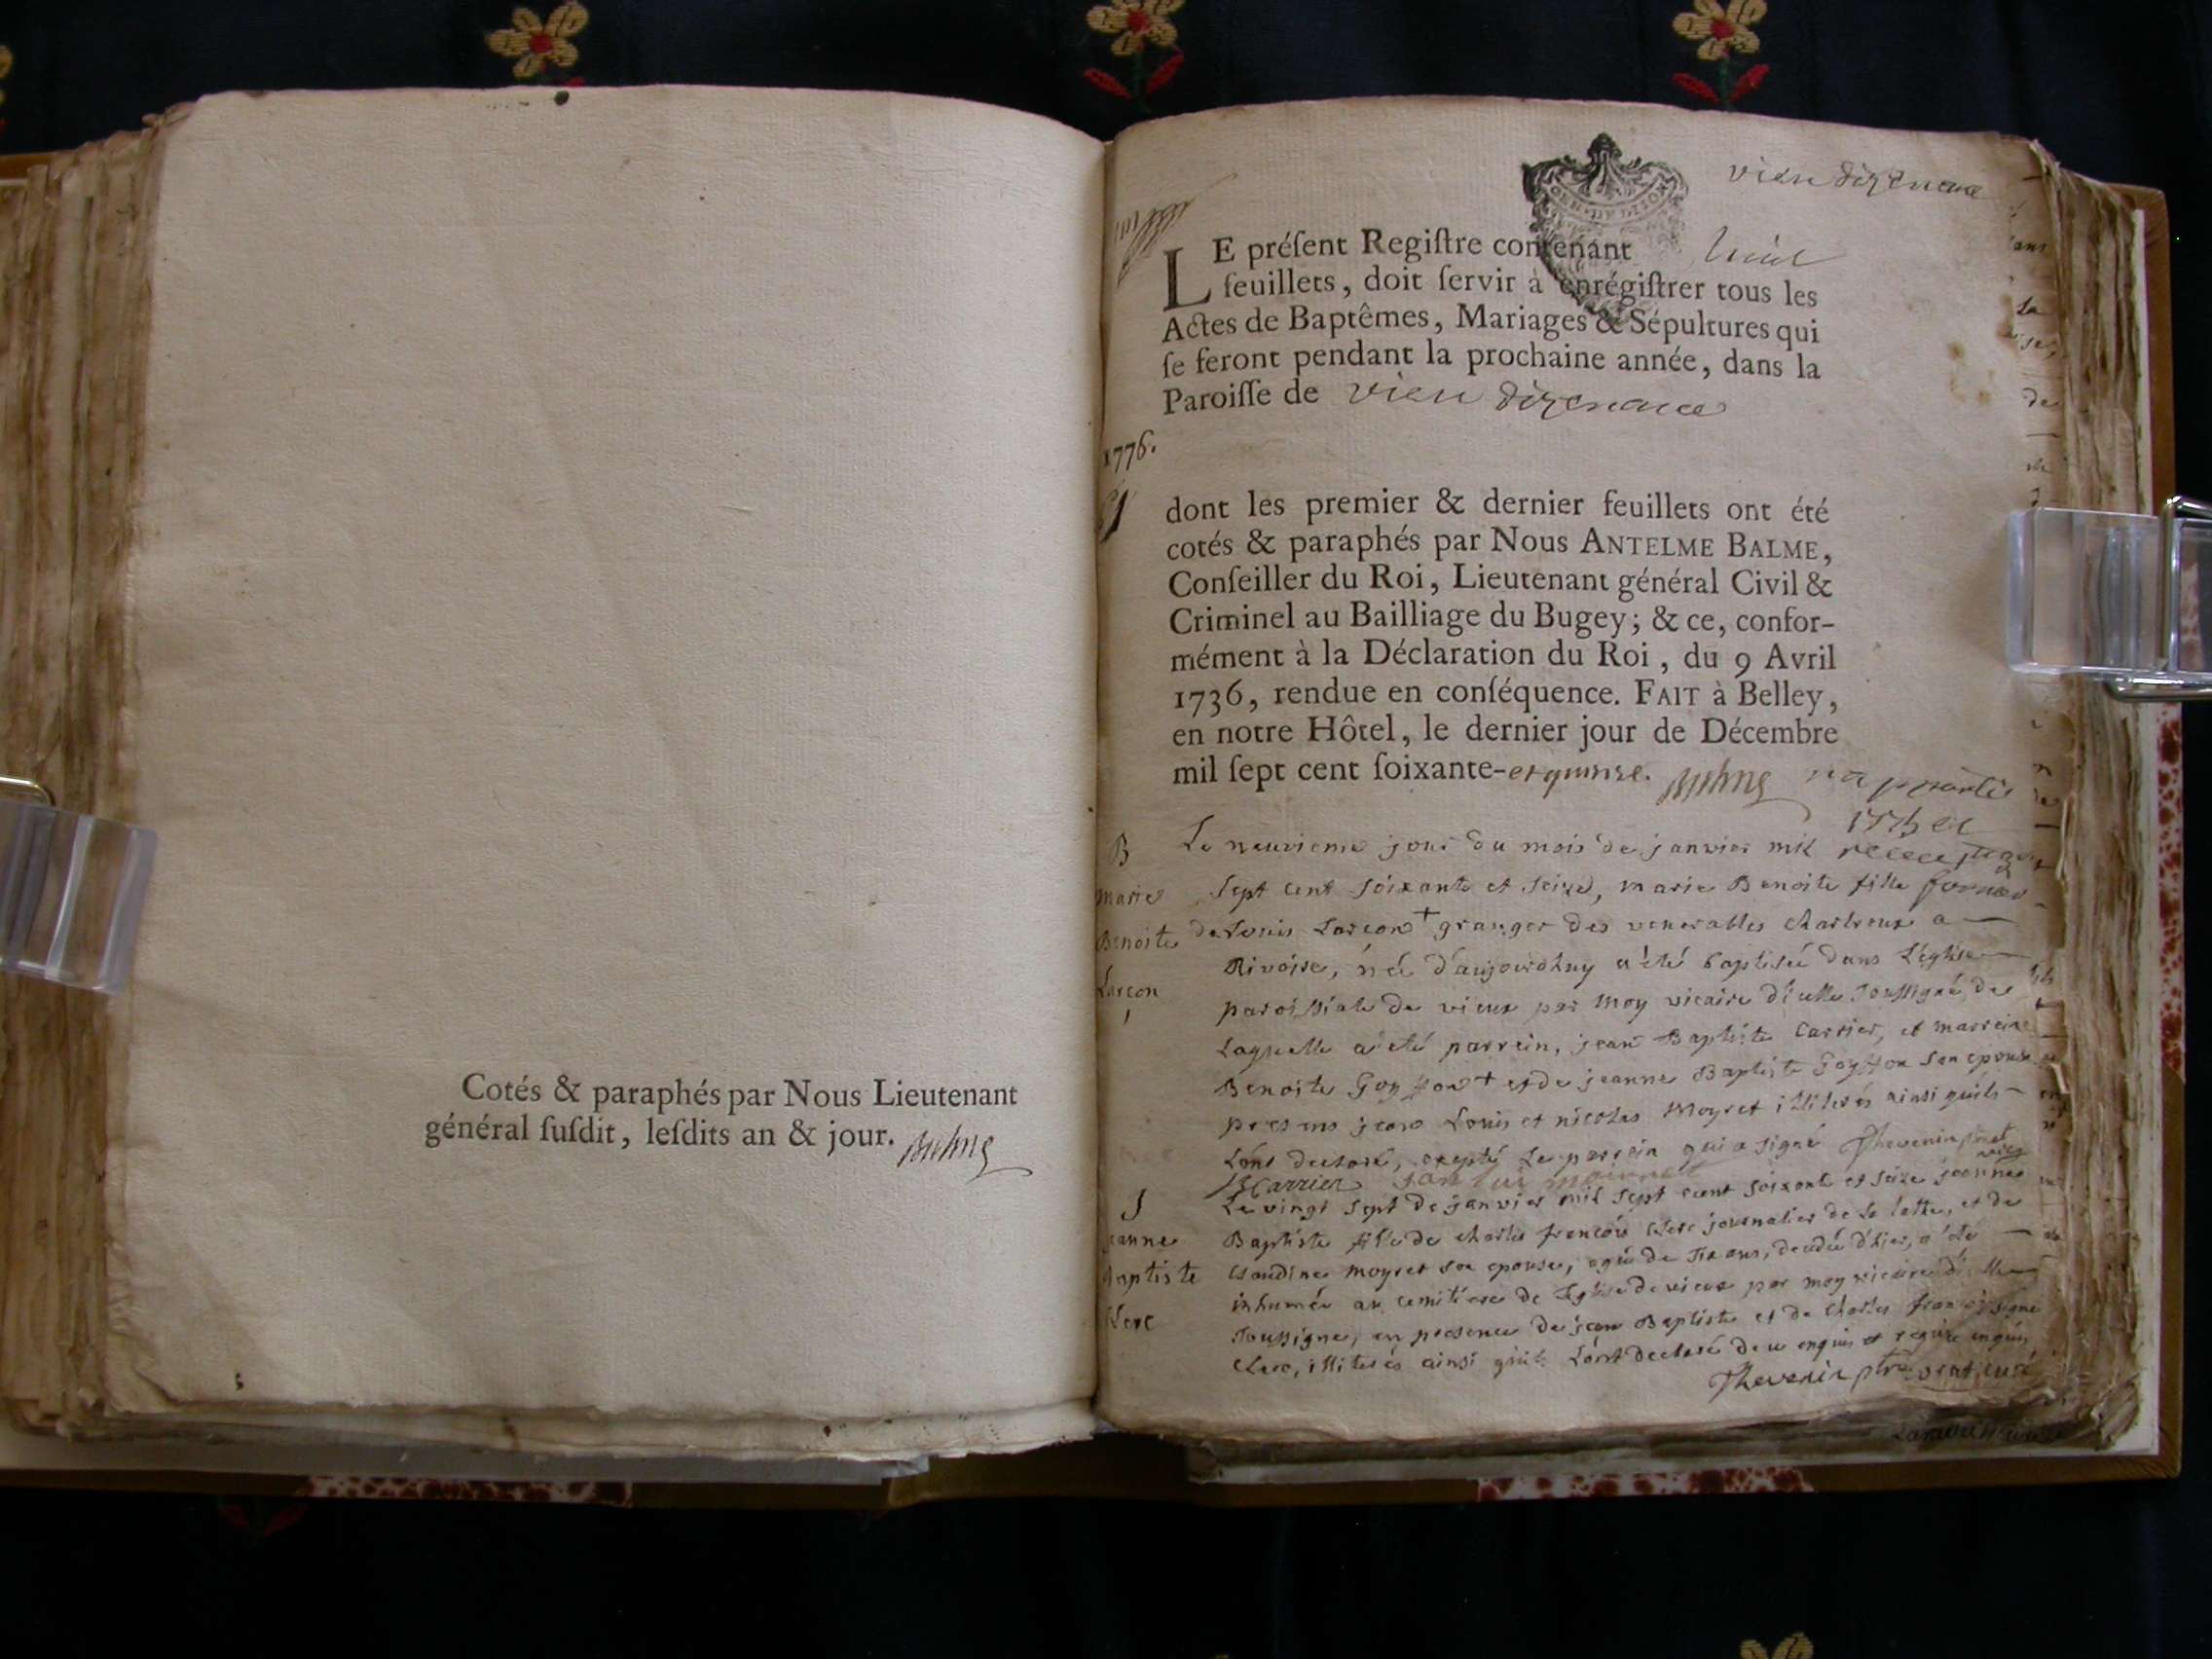 Cotés & paraphés par Nous Lieutenant
général ſuſdit, leſdits an & jour.
vieu dizenave
GEN. DE DIJON
LE préſent Regiſtre contenant huit
feuillets, doit ſervir à enrégiſtrer tous les
Actes de Baptêmes, Mariages & Sépultures qui
ſe feront pendant la prochaine année, dans la
Paroiſſe de vieu dizenave
1776.
dont les premier & dernier feuillets ont été
cotés & paraphés par Nous ANTELME BALME,
Conſeiller du Roi, Lieutenant général Civil &
Criminel au Bailliage du Bugey; & ce, confor-
mément à la Déclaration du Roi, du 9 Avril
1736, rendue en conſéquence. FAIT à Belley,
en notre Hôtel, le dernier jour de Décembre
mil ſept cent ſoixante-et quinze.
B
Le neuvieme jour du mois de janvier mil
marie
sept cent soixante et seize, marie Benoite fille
Benoite
de Louis Larçon + granger des venerables chartreux a
Rivoire, née d'aujourdhuy a été baptisée dans l'église
Larçon
paroissiale de vieux par moy vicaire d'icelle soussigné, de
Laquelle a été parrein, jean Baptiste Carrier, et marreine
Benoite + et de jeanne Baptiste son epouse
presens jean Louis et nicolas Moyret illiterés ainsi quils
Lont declaré, excepté Le parrein qui a signé Thevenin
JBCarrier
S
Le vingt sept de janvier mil sept cent soixante et seize jeanne
jeanne
Baptiste fille de charles francois Clerc journalier de et de
Baptiste
Claudine moyret son epouse, agée de six ans, decedée d'hier, a été
inhumée au cemitiere de L'eglise de vieux par moy vicaire d'icelle
Clerc
soussigné, en presence de jean Baptiste et de Charles françois
Clerc, illiterés ainsi quils Lont declaré de ce enquis et requis
Thevenin ptre